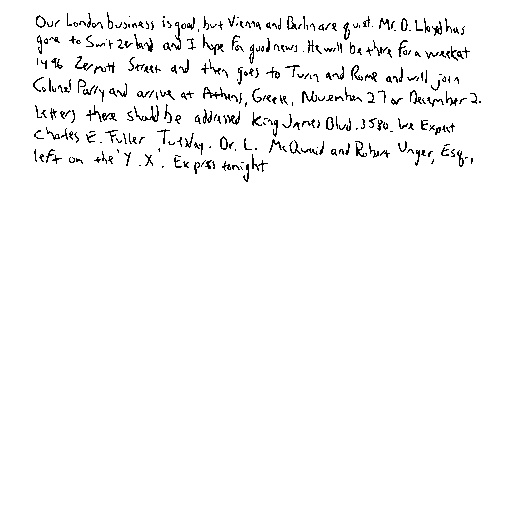 Our London business is good, but Vienna and Berlin are quiet. Mr. D. Lloyd has
gone to Switzerland and I hope for good news. He will be there for a week at
1496 Zermott Street and then goes to Turin and Rome and will join
Colonel Parry and arrive at Athens, Greece, November 27 or December 2.
Letters there should be addressed King James Blvd. 3580. We Expect
Charles E. Fuller Tuesday. Dr. L. McQuaid and Robert Unger, Esq.,
left on the 'Y.X'. Express tonight